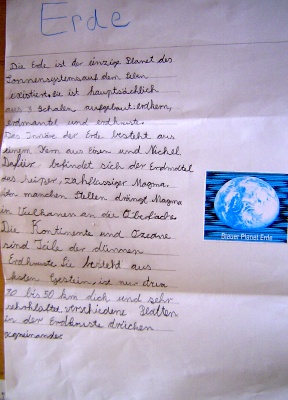 Erde
Die Erde ist der einzige Planet des
Sonnensystems auf dem Leben
existiert. Sie ist hauptsächlich
aus 3 Schalen aufgebaut: erdkern,
erdmantel und erdkruste.
Das Innere der Erde besteht aus
einem Kern aus Eisen und Nickel
befindet sich der Erdmantel
zähflüssiger Magma.
An manchen Stellen drängt Magma
in Vulkanen an der Oberfläche.
Die Kontinente und Ozeane
sind Teile der dünnen
Erdkruste. Sie besteht aus
Gestein, ist nur etwa
30 bis 50 km dick und sehr
verschiedene Platten
in der Erdkruste drücken
gegeneinander.
Blauer Planet Erde